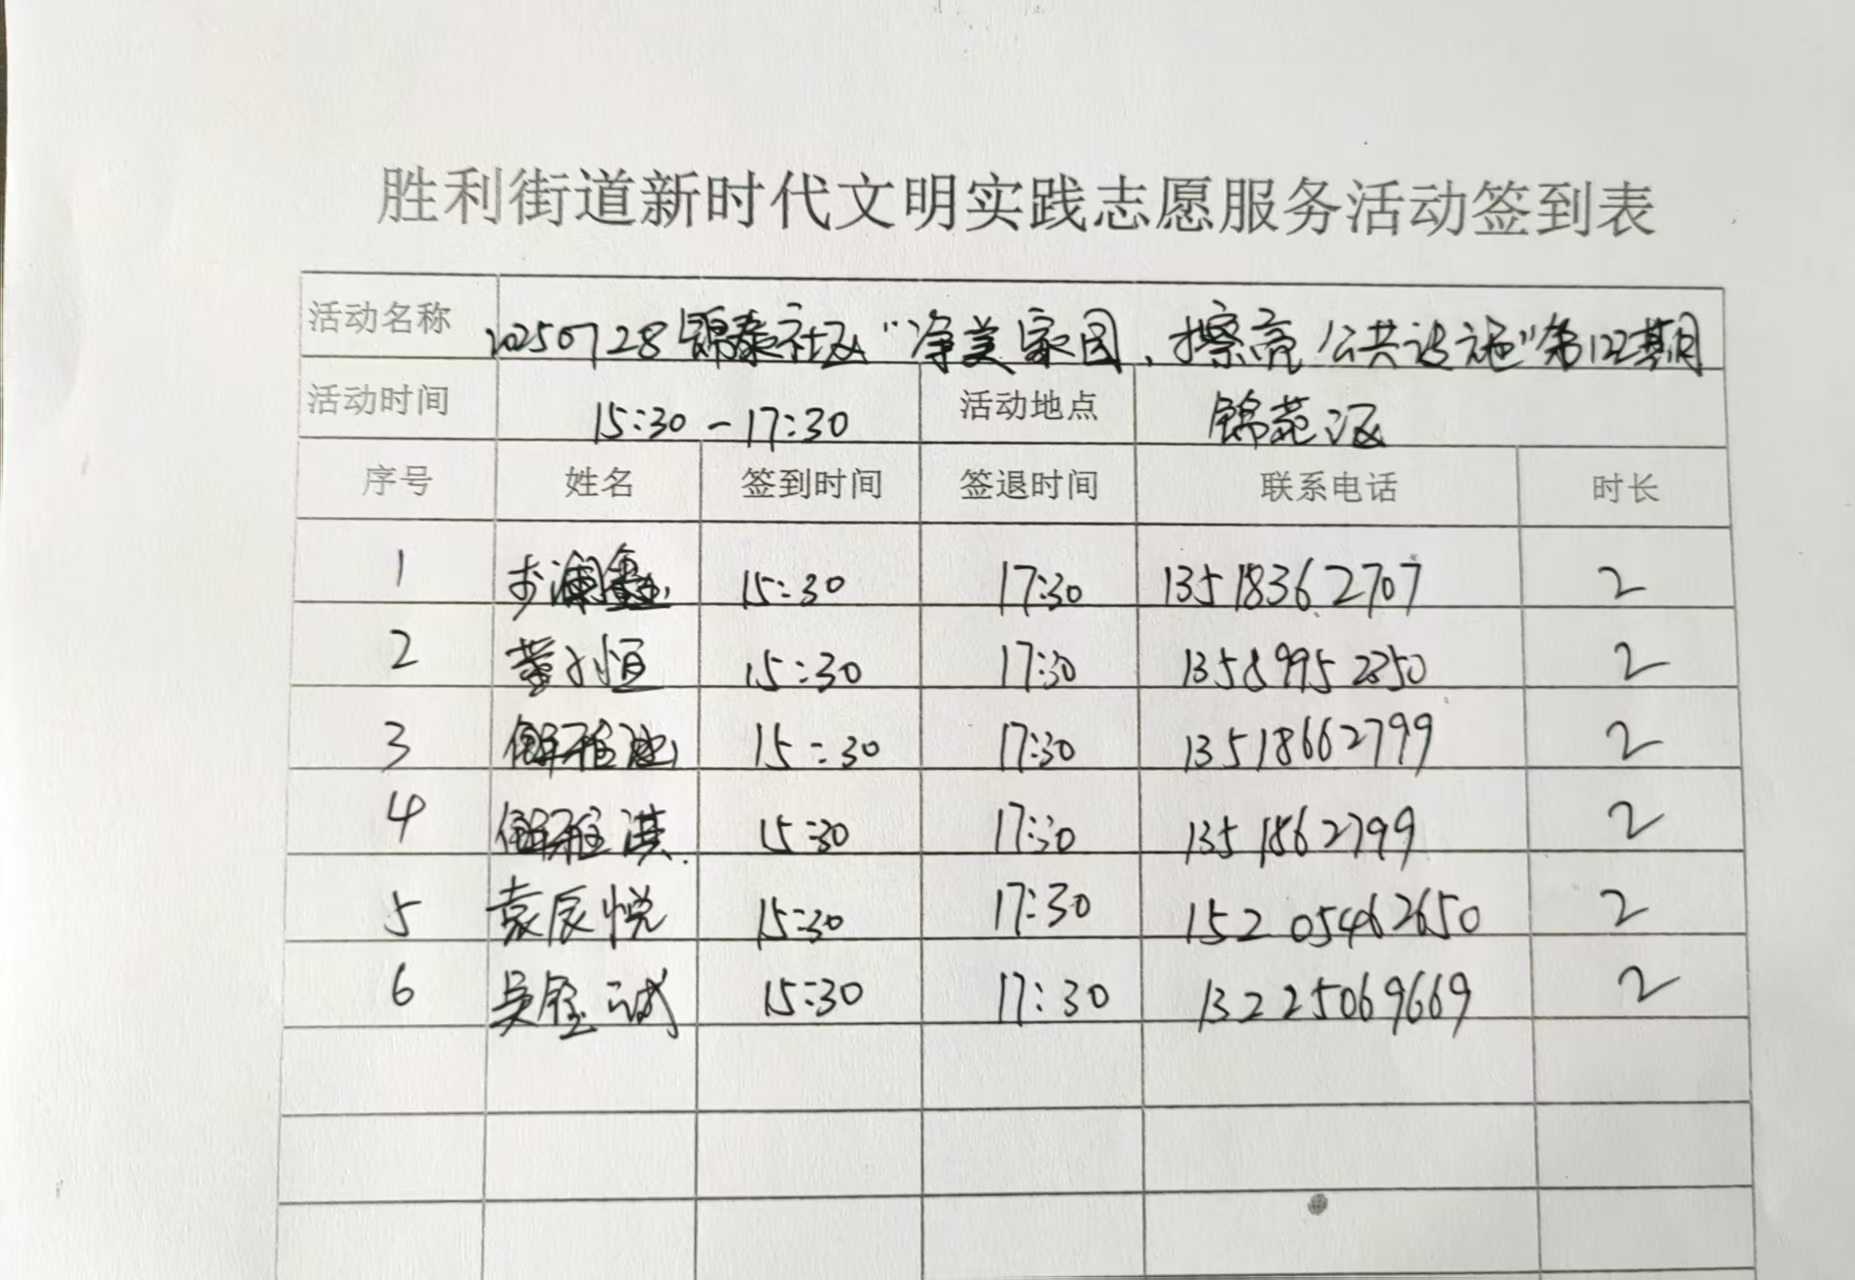 胜利街道新时代文明实践志愿服务活动签到表
活动名称 20250728锦泰社区“净美家园，擦亮公共设施”第122期
活动时间 15:30-17:30 活动地点 锦苑三区
序号 姓名 签到时间 签退时间 联系电话 时长
1 步澜鑫 15:30 17:30 13518362707 2
2 董小恒 15:30 17:30 13589952350 2
3 解雅迪 15:30 17:30 13518662799 2
4 解雅淇 15:30 17:30 1351862799 2
5 袁辰悦 15:30 17:30 15205462650 2
6 吴铨诚 15:30 17:30 13225069669 2